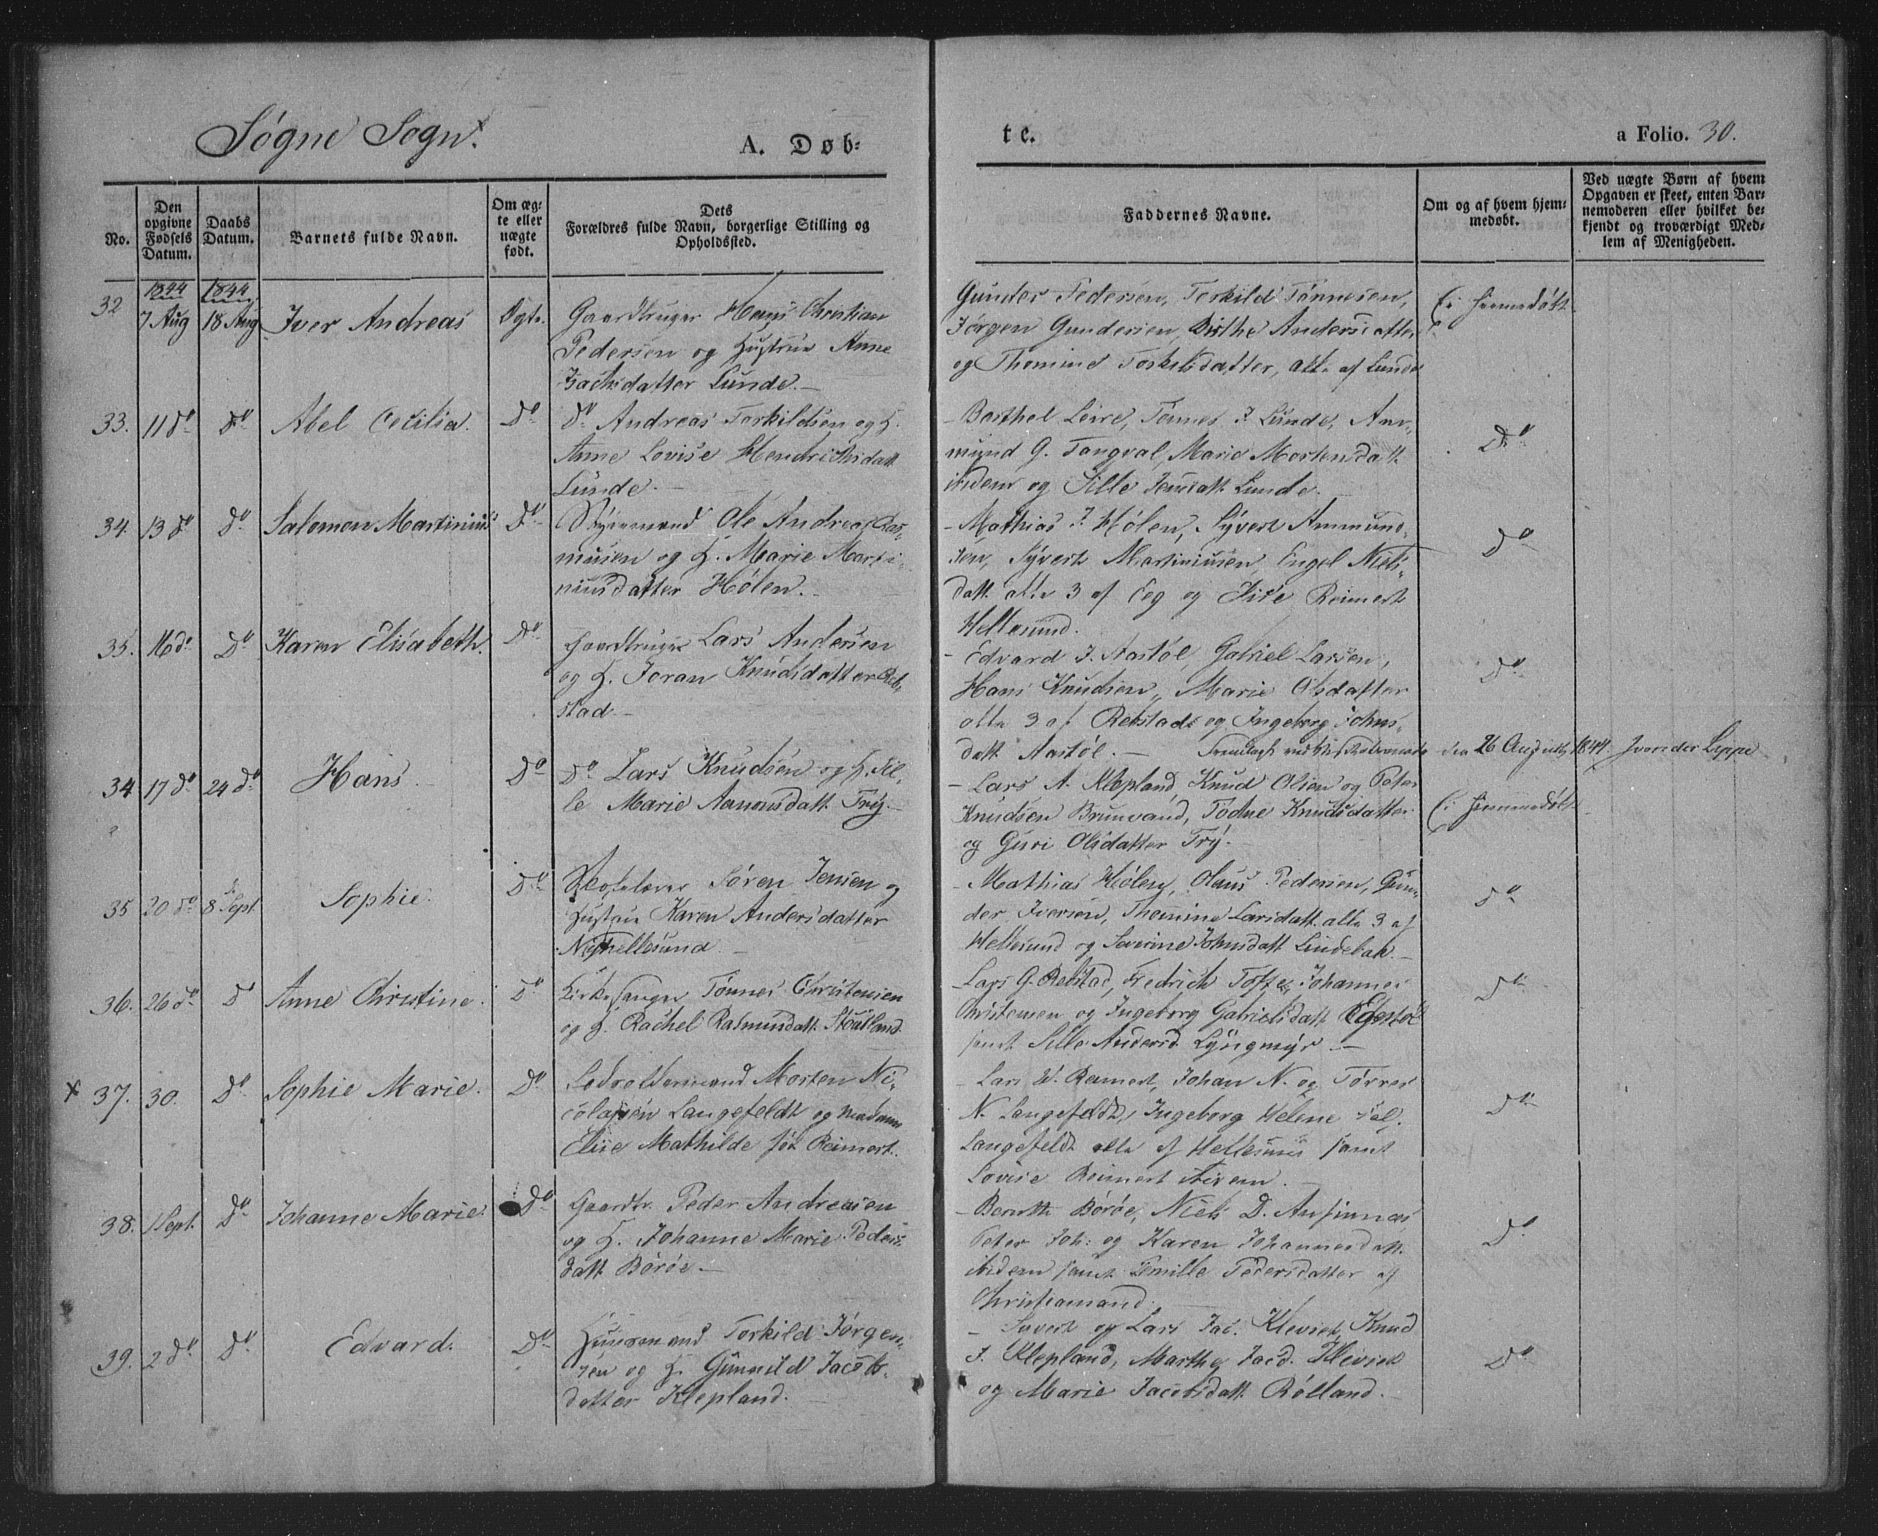 Søgne Sogn.
A. Døb-
te.
a Folio. 30.
No.
Den opgivne Fødsels Datum.
Daabs Datum.
Barnets fulde Navn.
Om ægte eller uægte født.
Dets Forældres fulde Navn, borgerlige Stilling og Opholdssted.
Faddernes Navne.
Om og af hvem hjemmedøbt.
Ved uægte Børn af hvem Opgaven er skeet, enten Barnemoderen eller hvilket bekjendt og troværdigt Medlem af Menigheden.
1844 1844
32 7 Aug 18 Aug Iver Andreas Ægte. Gaardbruger Hans Christian
Pedersen og Hustrue Anne
Isachsdatter Lunde.
Gunder Pedersen, Torkild Tønnesen, Ei hjemmedøbt
Jørgen Gundersen, Birthe Andersdatter
og Thomine Torkilsdatter, alle af Lunde
33. 11 do do Abel Cecilia. Do do Andreas Torkildsen og H.
Anne Lovise Hendrichsdatt
Lunde.
Barthel Leire, Tønnes J. Lunde, Am-
mund G. Tangval, Marie Mortensdatt
ibidem og Sille Jensdatt Lunde. Do
34. 13 do do Salomon Martinius Do Styrmand Ole Andreas Ras-
musen og H. Marie Marti-
niusdatter Hølen.
Mathias J. Hølen, Syvert Ammund-
sen, Syvert Martiniussen, Engel Niels-
datt. alle 3 af Eeg og Reimert
Hellesund. do
35. 16 do. Do Karen Elisabeth. Do Gaardbruger Lars Andersen
og H. Joran Knudsdatter Reb-
stad
Edvard J. Aastøl, Gabriel Larsen,
Hans Knudsen, Marie Olsdatter
alle 3 af Rebstad og Ingeborg Johns-
datt Aastøl. do
den 26 August 1844. Iver der Lippe
34 17 do 24 do Hans. Do Do Lars Knudsen og H. Sil-
le Marie Aanonsdatt Try.
Lars A. Klepland, Knud Olsen og Peter
Knudsen Brunvand, Todne Knudsdatter
og Guri Olsdatter Try. Ei hjemmedøbt
35 20 do 8 Sept. Sophie. Do Søren Jensen og
Hustrue Karen Andersdatter
Nyhellesund
Mathias Hølen, Olaus Pedersen, Gun-
der Iversen, Thomine Larsdatt alle 3 af
Hellesund og Severine Johnsdatt Lindebak. do
36. 26 do D Anne Christine. Do Kirkesanger Tønnes Christensen
og H. Rachel Rasmusdatt. Stousland
Lars G. Rebstad, Fredrich Toffe, Johannes
Christensen og Ingeborg Gabrielsdatt Egestøl
samt Sille Andersd Lyngmyr. Do
x 37. 30. Do Sophie Marie. Do Lodsoldermand Morten Ni-
colaysen Langefeldt og madame
Elise Mathilde fød Reimert.
Lars W. Reimert, Johan N. og Tørres
N. Langefeldt, Ingeborg Helene
Langefeldt alle af Hellesund samt
Lovise Reimert ibidem. Do
38. 1 Sept. Do Johanne Marie. Do Gaardbr. Peder Andreasen
og H. Johanne Marie Peders-
datt Børøe.
Berntt Børøe, Niels D. Anfinnæs
Peter Joh: og Karen Johannesdatt.
ibidem samt Emille Pedersdatter af
Christiansand. do
39. 2 do Do Edvard. Do Huusmand Torkild Jørgen-
sen og H. Gunnild Jacobs-
datter Klepland.
Syvert og Lars Jac. Kleviek, Knud
J. Klepland, Marthe Jacd. Kleviek
og Marie Jacobsdatt Rølland. Do